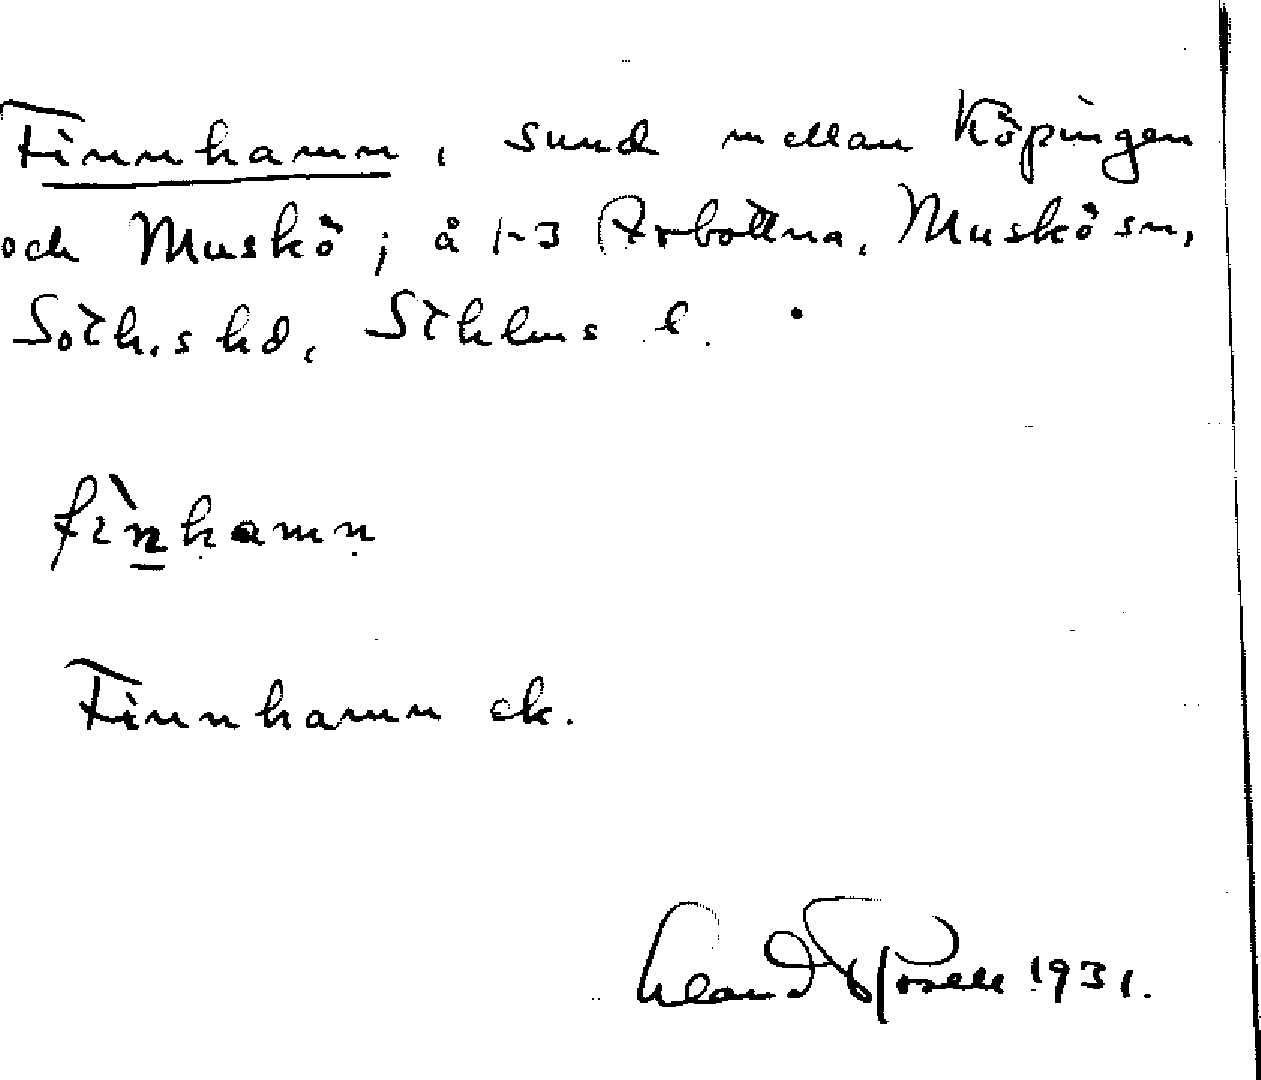 Finnhamn, sund mellan Köpingen
och Muskö; å 1-3 Arbottna, Muskö sn,
Soth.s hd, Sthlms l.
fìn̲hamn
Finnhamn ek.
1931.